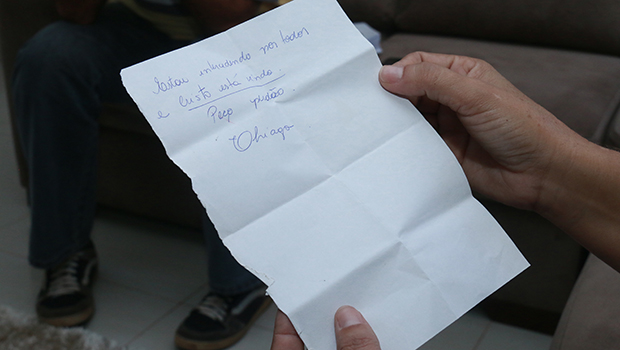 Estou intercedendo por todos
e Cristo está vindo.
Peço perdão.
Thiago